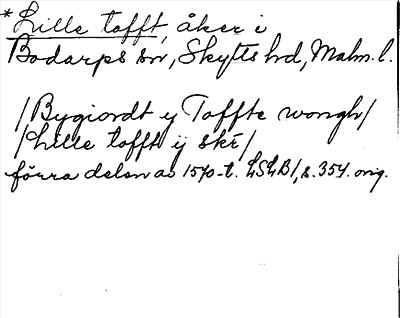 *Lille tofft, åker i
Bodarps sn, Skytts hd, Malm. l.
/Bygiordt y Toffte wongh/
/hille tofft ij ske/
förra delen av 1570-t. LSLB/, s. 354. orig.